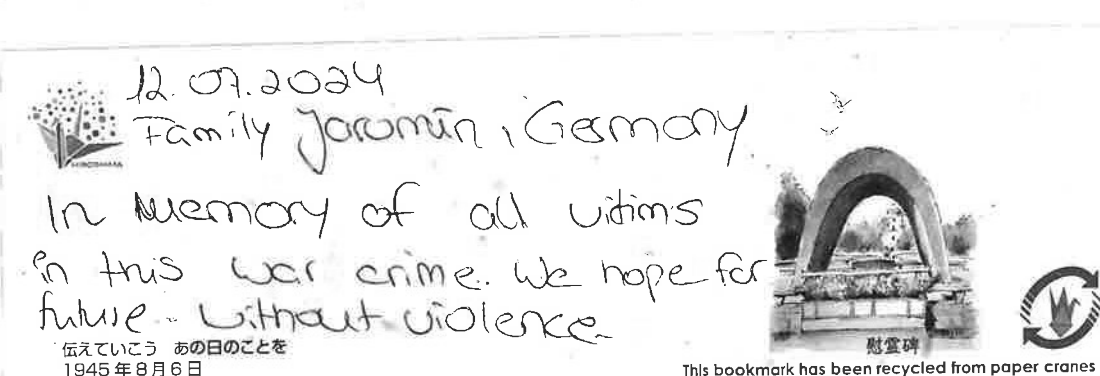 12.07.2024
Family Jaromin, Germany
HIROSHIMA
In Memory of all vitims
in this war crime. We hope for
future without violence.
伝えていこう あの日のことを
1945年8月6日
慰霊碑
This bookmark has been recycled from paper cranes